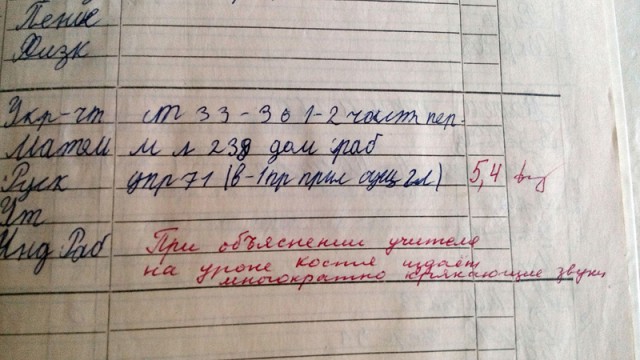 Пение
Физк
Укр-чт ст 33-36 1-2 част пер.
Матем м л 238 дом раб
Руск упр 71 (в-1пр прил сущ гл) 5,4
Чт
Инд. Раб При объяснении учителя
на уроке костя издаёт
многократно крякающие звуки